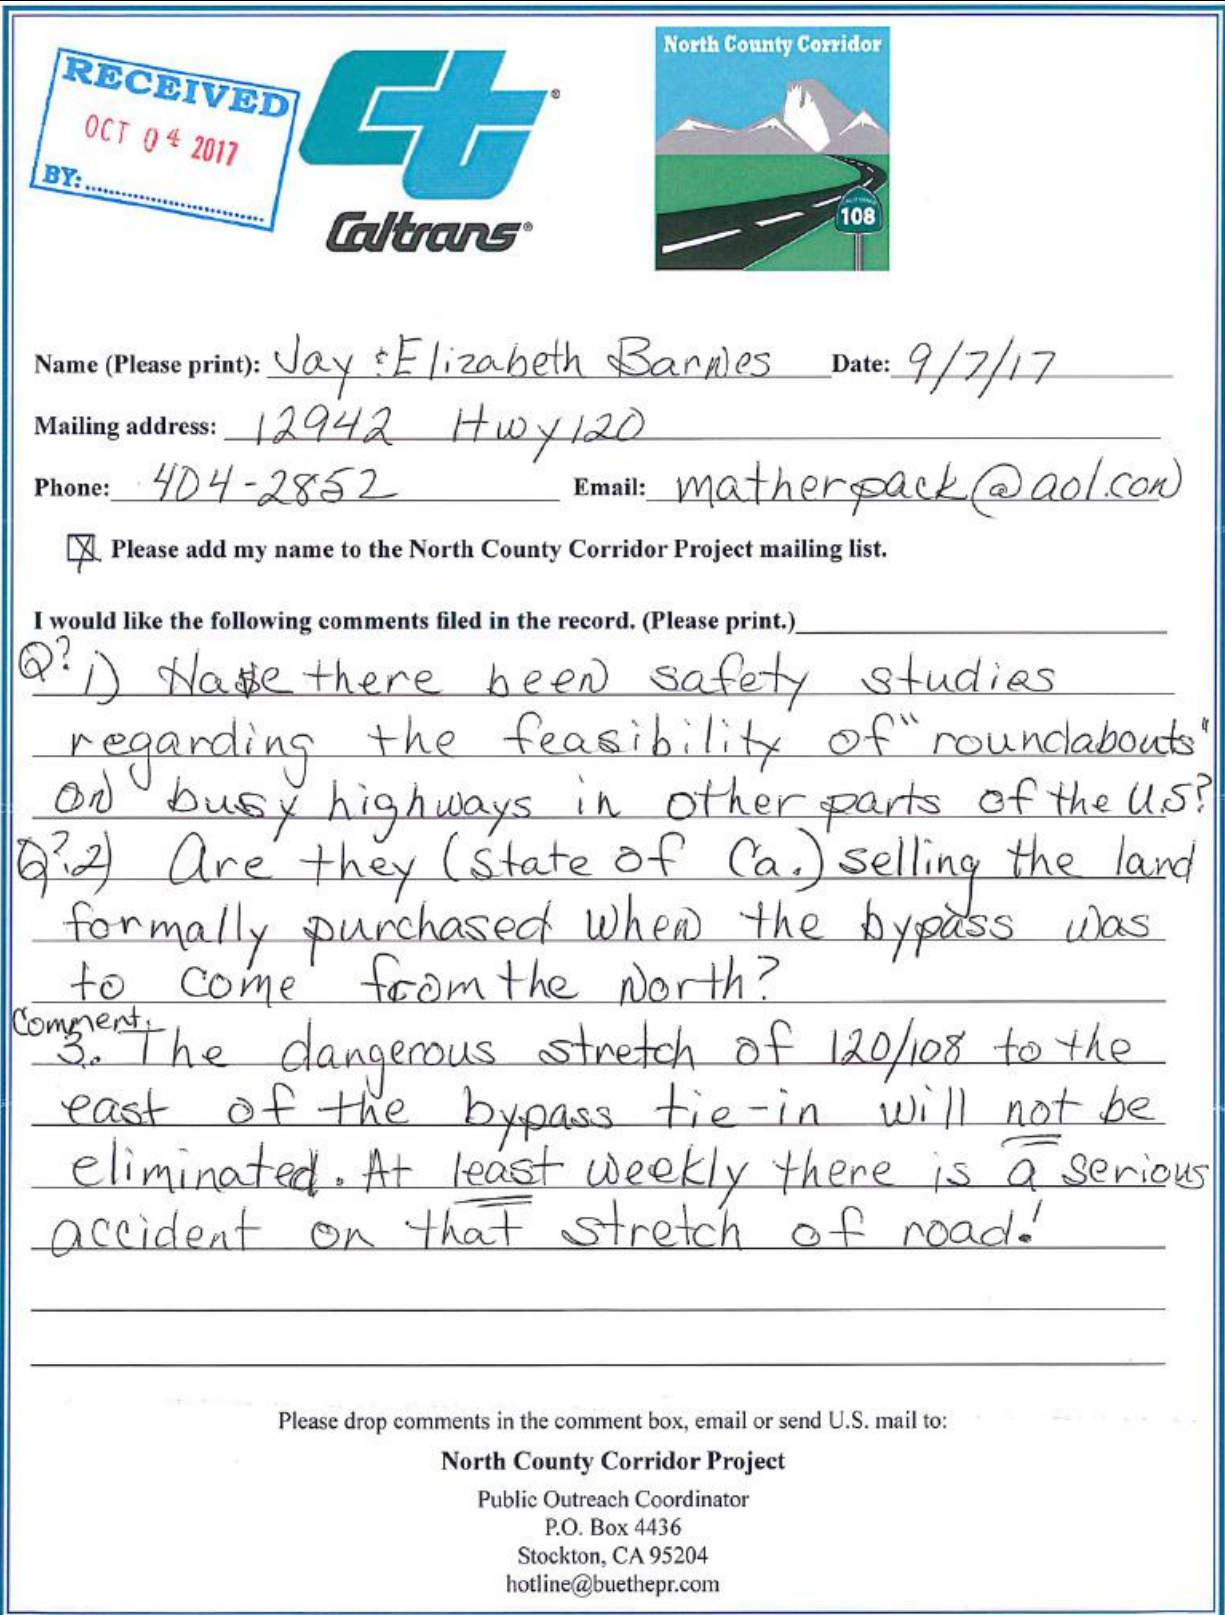 RECEIVED
OCT 04 2017
BY:
Ct®
Caltrans®
North County Corridor
CALIFORNIA
108
Name (Please print): Jay & Elizabeth Barnes Date: 9/7/17
Mailing address: 12942 Hwy 120
Phone: 404-2852 Email: matherpack@aol.com
☒ Please add my name to the North County Corridor Project mailing list.
I would like the following comments filed in the record. (Please print.)
Q? 1) Have there been safety studies
regarding the feasibility of "roundabouts"
on busy highways in other parts of the U.S?
Q? 2) Are they (State of Ca.) selling the land
formally purchased when the bypass was
to come from the North?
Comment:
3. The dangerous stretch of 120/108 to the
east of the bypass tie-in will not be
eliminated. At least weekly there is a serious
accident on that stretch of road!
Please drop comments in the comment box, email or send U.S. mail to:
North County Corridor Project
Public Outreach Coordinator
P.O. Box 4436
Stockton, CA 95204
hotline@buethepr.com